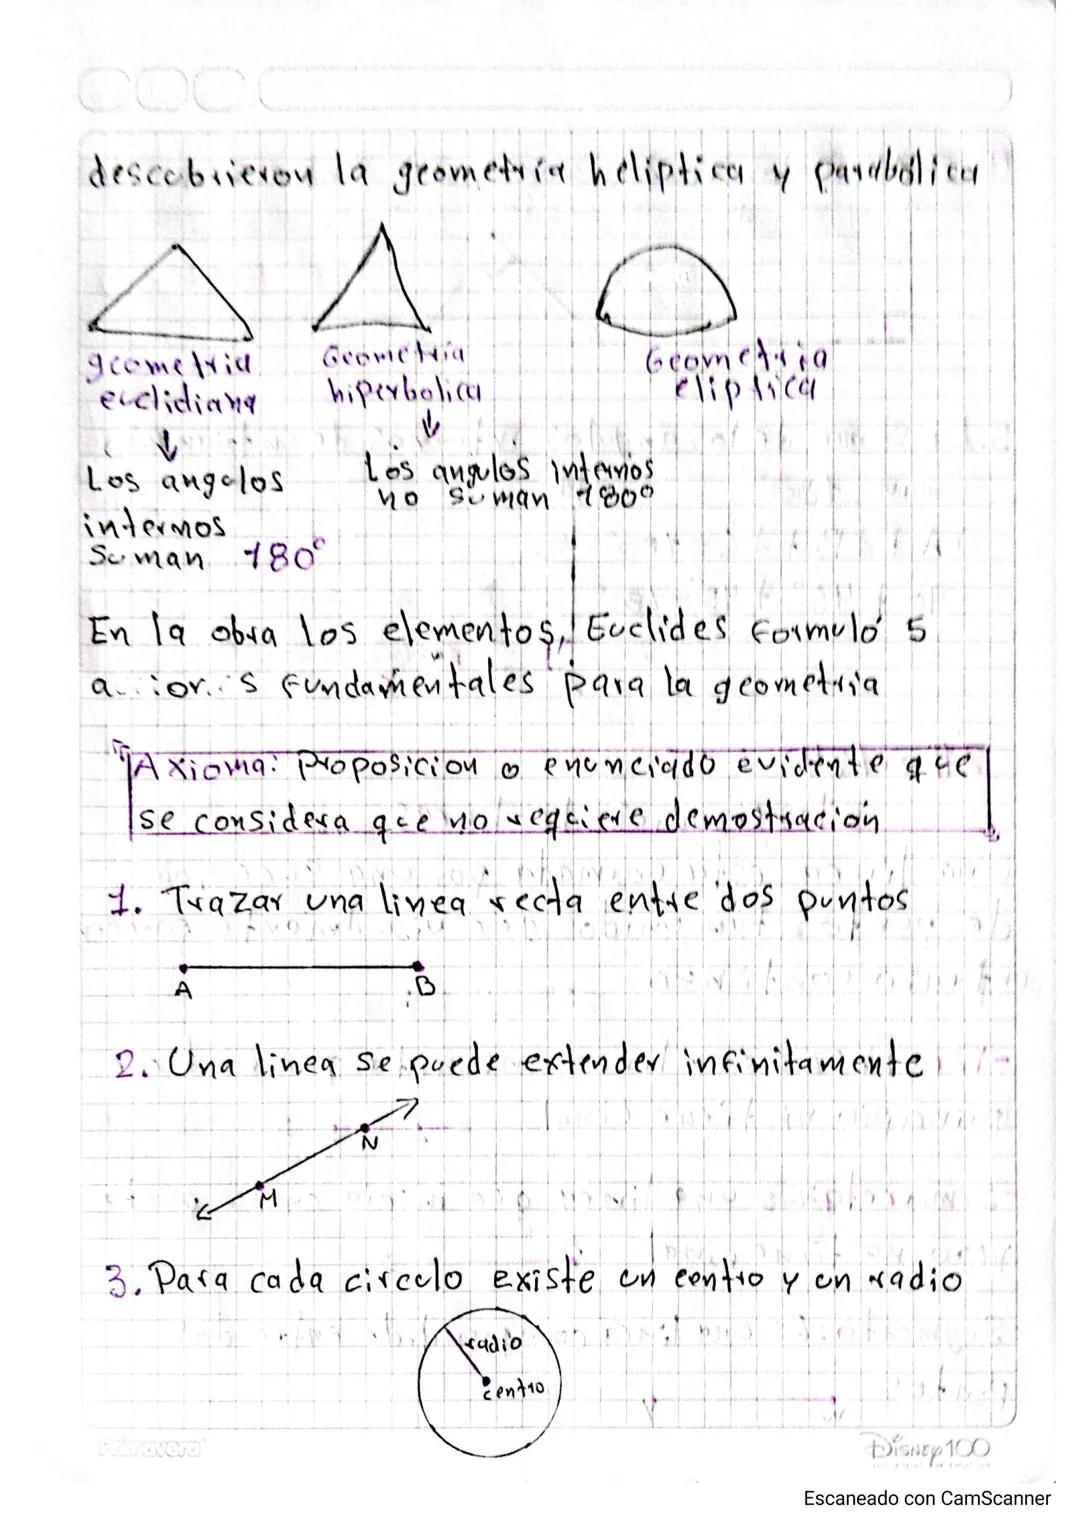 descubrieron la geometría heliptica y parabólica
geometria
euclidiana
Geometria
hiperbolica
Geometria
eliptica
Los angulos
internos
suman 180°
Los angulos internos
no suman 180°
En la obra los elementos, Euclides formuló 5
fundamentales para la geometria
Axioma: Proposicion o enunciado evidente que
se considera que no requiere demostración
1. Trazar una linea recta entre dos puntos
A B
2. Una linea se puede extender infinitamente
N
M
3. Para cada circulo existe un centro y un radio
radio
centro
Primavera
DISNEY100
Escaneado con CamScanner